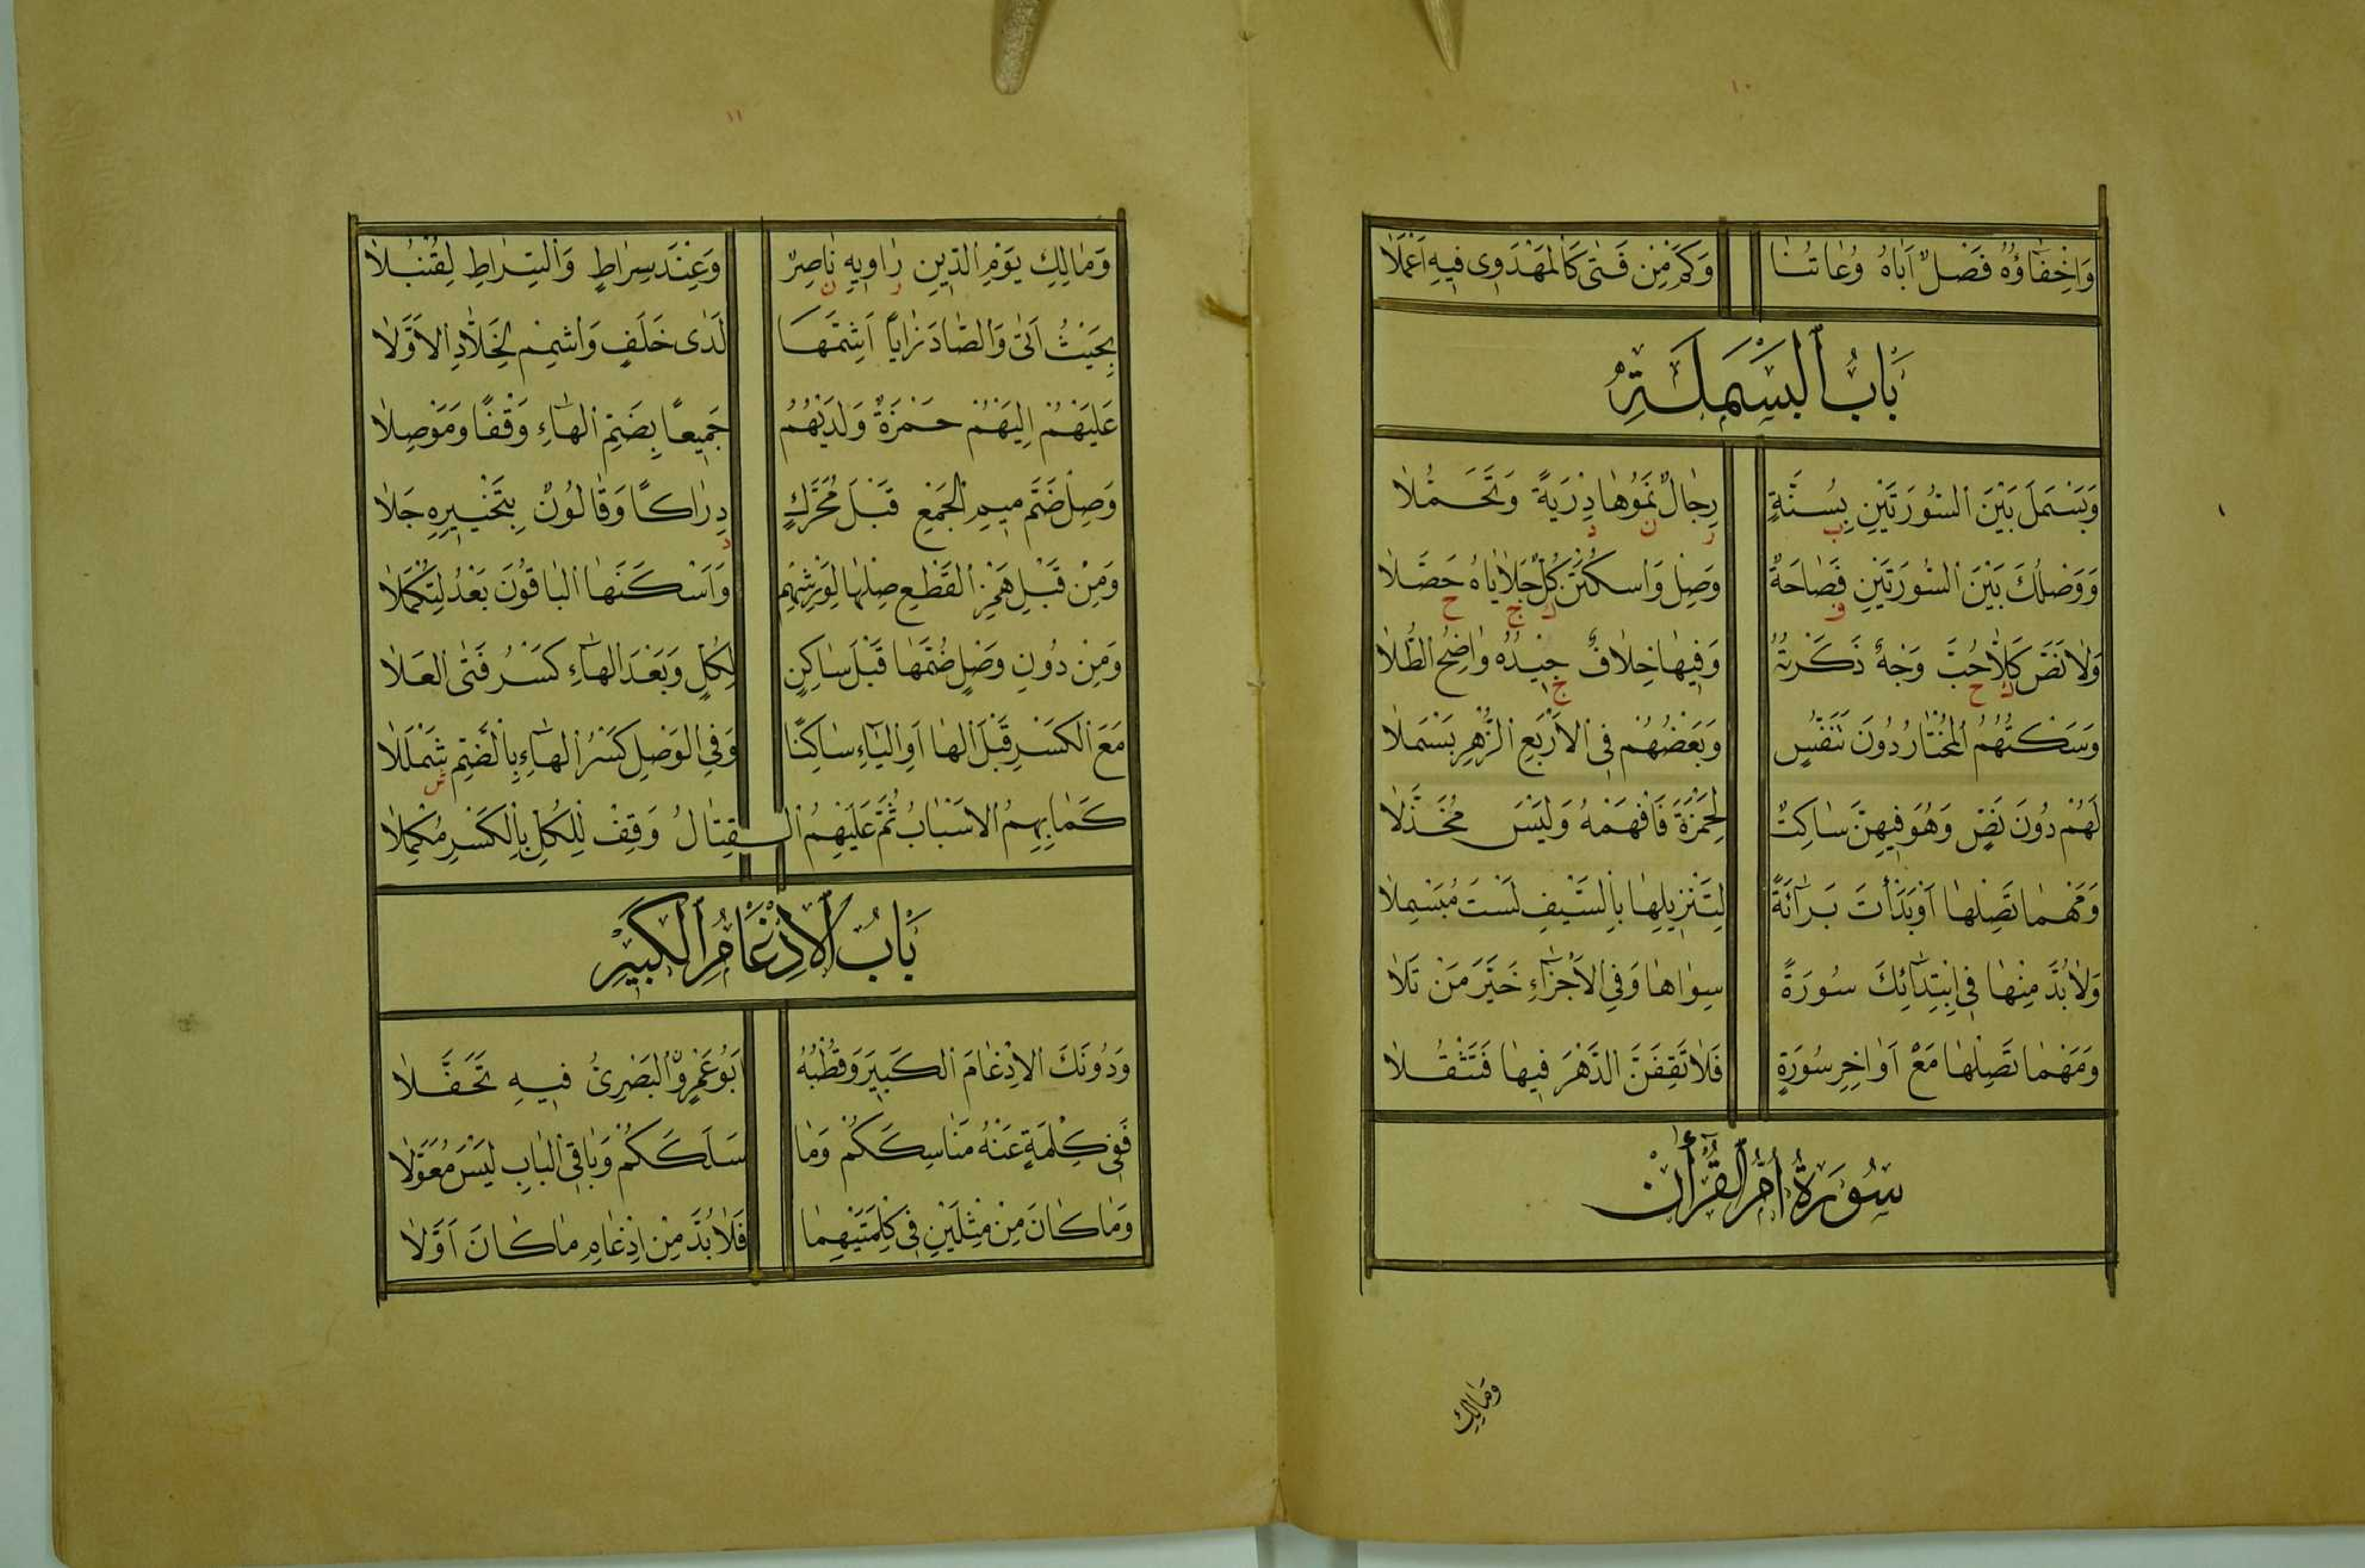 ١٠
وَاِخْفَاؤُهُ فَصْلٌ اَبَاهُ وُعَاتُنَا وَكَمْ مِنْ فَتًى كَالْمَهْدَوِى فِيهِ اَعْمَلَا
بَابُ الْبَسْمَلَةِ
وَبَسْمَلَ بَيْنَ السُّورَتَيْنِ بِسُنَّةٍ رِجَالٌ نَمَوْهَا دِرْيَةً وَتَحَمُّلَا
ب ر ن د
وَوَصْلُكَ بَيْنَ السُّورَتَيْنِ فَصَاحَةٌ وَصِلْ وَاسْكُتَنْ كُلٌّ جَلَايَاهُ حَصَّلَا
ف ك ج ح
وَلَا نَصَّ كَلَّا حُبَّ وَجْهٌ ذَكَرْتُهُ وَفِيهَا خِلَافٌ جِيْدُهُ وَاضِحُ الطُّلَا
ك ح ج
وَسَكْتُهُمُ الْمُخْتَارُ دُونَ تَنَفُّسٍ وَبَعْضُهُمْ فِى الْاَرْبَعِ الزُّهْرِ بَسْمَلَا
لَهُمْ دُونَ نَصٍّ وَهْوَ فِيهِنَّ سَاكِتٌ لِحَمْزَةَ فَافْهَمْهُ وَلَيْسَ مُخَذَّلَا
وَمَهْمَا تَصِلْهَا اَوْ بَدَأْتَ بَرَآئَةً لِتَنْزِيلِهَا بِالسَّيْفِ لَسْتَ مُبَسْمِلَا
وَلَا بُدَّ مِنْهَا فِى ابْتِدَائِكَ سُورَةً سِوَاهَا وَفِى الْاَجْزَاءِ خَيَّرَ مَنْ تَلَا
وَمَهْمَا تَصِلْهَا مَعْ اَوَاخِرِ سُورَةٍ فَلَا تَقِفَنَّ الدَّهْرَ فِيهَا فَتَثْقُلَا
سُورَةُ اُمِّ الْقُرْأٰنْ
وَمَالِكِ
١١
وَمَالِكِ يَوْمِ الدِّينِ رَاوِيهِ نَاصِرٌ وَعِنْدَ سِرَاطٍ وَالسِّرَاطِ لِقُنْبُلَا
ر ن
بِحَيْثُ اَتٰى وَالصَّادَ زَايًا اَشِمَّهَا لَدٰى خَلَفٍ وَاشْمِمْ لِخَلَّادِ الْاَوَّلَا
عَلَيْهُمْ اِلَيْهُمْ حَمْزَةٌ وَلَدَيْهُمُ جَمِيعًا بِضَمِّ الْهَاءِ وَقْفًا وَمَوْصِلَا
وَصِلْ ضَمَّ مِيمِ الْجَمْعِ قَبْلَ مُحَرَّكٍ دِرَاكًا وَقَالُونٌ بِتَخْيِيرِهِ جَلَا
د
وَمِنْ قَبْلِ هَمْزِ الْقَطْعِ صِلْهَا لِوَرْشِهِمْ وَاَسْكَنَهَا الْبَاقُونَ بَعْدُ لِتَكْمُلَا
وَمِنْ دُونِ وَصْلٍ ضُمَّهَا قَبْلَ سَاكِنٍ لِكُلٍّ وَبَعْدَ الْهَاءِ كَسْرُ فَتَى الْعَلَا
مَعَ الْكَسْرِ قَبْلَ الْهَا اَوِ الْيَاءِ سَاكِنًا وَفِى الْوَصْلِ كَسْرُ الْهَاءِ بِالضَّمِّ شَمْلَلَا
ش
كَمَا بِهِمُ الْاَسْبَابُ ثُمَّ عَلَيْهِمُ الْقِتَالُ وَقِفْ لِلْكُلِّ بِالْكَسْرِ مُكْمِلَا
بَابُ الْاِدْغَامِ الْكَبِيْرِ
وَدُونَكَ الْاِدْغَامَ الْكَبِيرَ وَقُطْبُهُ اَبُو عَمْرٍو الْبَصْرِىُّ فِيهِ تَحَفَّلَا
فَفِى كِلْمَةٍ عَنْهُ مَنَاسِكَكُمْ وَمَا سَلَكَكُمْ وَبَاقِى الْبَابِ لَيْسَ مُعَوَّلَا
وَمَا كَانَ مِنْ مِثْلَيْنِ فِى كِلْمَتَيْهِمَا فَلَا بُدَّ مِنْ اِدْغَامِ مَا كَانَ اَوَّلَا